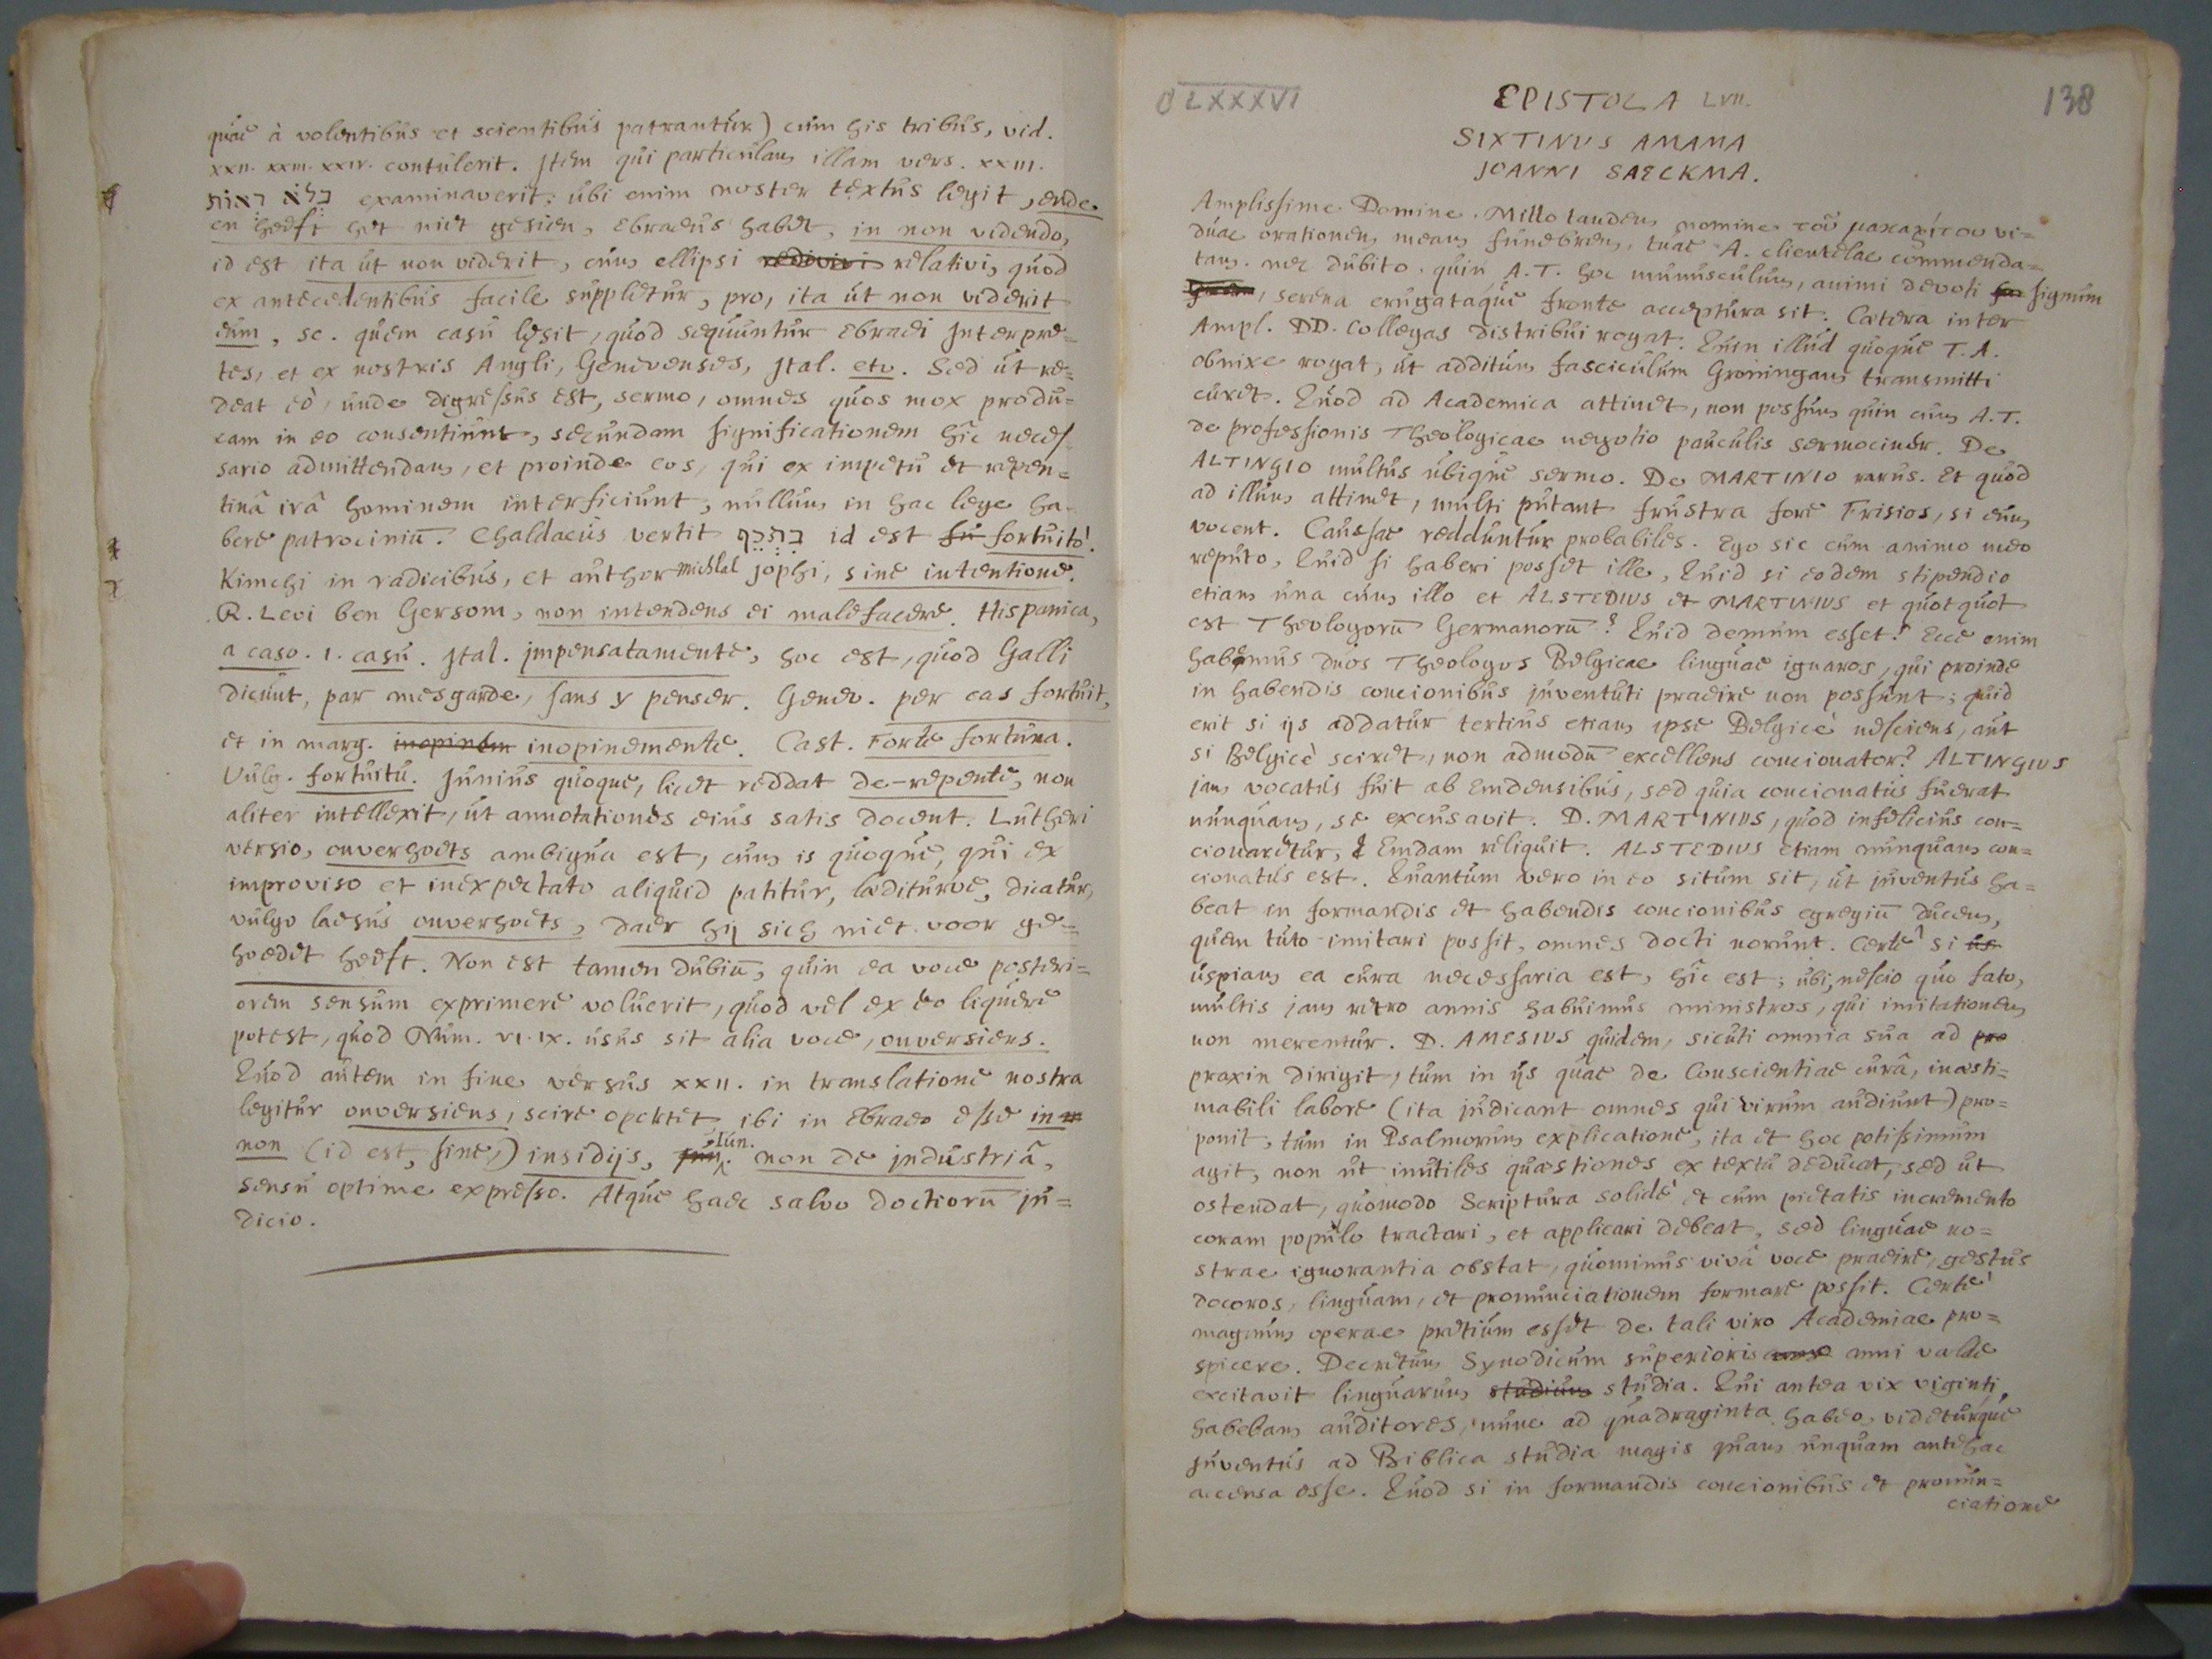 quae à volentibus et scientibus patrantur) cum his tribus, vid.
xxii. xxiii. xxiv. contulerit. Item qui particulam illam vers. xxiii.
בְּלֹא רְאוֹת examinaverit, ubi enim noster textus legit, ende
en heeft het niet gesien, Ebraeus habet, in non videndo,
id est ita ut non viderit, cum ellipsi redivivi relativi, quod
ex antecedentibus facile suppletur, pro, ita ut non viderit
eum, sc. quem casu lęsit, quod sequuntur Ebraei Interpre=
tes, et ex nostris Angli, Genevenses, Ital. etc. Sed ut re=
deat eò, unde digressus est, sermo, omnes quos mox produ=
cam in eo consentiunt, secundam significationem hîc neces-
sario admittendam, et proinde eos, qui ex impetu et repen=
tinâ irâ hominem interficiunt, nullum in hac lege ha-
bere patrociniū. Chaldaeus vertit בִּתְכֵף id est fu fortuitò.
Kimchi in radicibus, et author michlal jophi, sine intentione.
R. Levi ben Gersom, non intendens ei malefacere. Hispanica,
a caso. i. casu. Ital. impensatamente, hoc est, quod Galli
dicunt, par mesgarde, sans y penser. Genev. per cas fortuit,
et in marg. inopinem inopinemente. Cast. Forte fortuna.
Vulg. fortuitu. Junius quoque, licet reddat de-repente, non
aliter intellexit, ut annotationes eius satis docent. Lutheri
versio, onverhoets ambigua est, cum is quoque, qui ex
improviso et inexpectato aliquid patitur, læditurve, dicatur,
vulgo laesus onverhoets, daer hij sich niet voor ge=
hoedet heeft. Non est tamen dubiū, quin ea voce posteri=
orem sensum exprimere voluerit, quod vel ex eo liquere
potest, quod Num. vi. ix. usus sit alia voce, onversiens.
Quod autem in fine versus xxii. in translatione nostra
legitur onversiens, scire oportet ibi in Ebraeo esse in
non (id est, sine,) insidijs, Iun. non de industriâ,
sensu optime expresso. Atque haec salvo doctiorū ju=
dicio.
CLXXXVI
EPISTOLA LVII.
138
SIXTINUS AMAMA
JOANNI SAECKMA.
Amplissime Domine. Mitto tandem nomine τοῦ μακαρίτου vi=
duae orationem meam funebrem, tuae A. clientelae commenda=
tam. nec dubito. quin A.T. hoc munusculum, animi devoti signum
, serena erugataque fronte acceptura sit. Cætera inter
Ampl. DD. Collegas distribui rogat. Quin illud quoque T.A.
obnixe rogat, ut additum fasciculum Groningam transmitti
curet. Quod ad Academica attinet, non possum quin cum A.T.
de professionis Theologicae negotio pauculis sermociner. De
ALTINGIO multus ubique sermo. De MARTINIO rarus. Et quod
ad illum attinet, multi putant frustra fore Frisios, si eum
vocent. Caussae redduntur probabiles. Ego sic cum animo meo
reputo, Quid si haberi posset ille, Quid si eodem stipendio
etiam una cum illo et ALSTEDIUS et MARTINIUS et quotquot
est Theologorū Germanorū? Quid demum esset? Ecce enim
habemus duos Theologos Belgicae linguae ignaros, qui proinde
in habendis concionibus juventuti praeire non possunt; quid
erit si ijs addatur tertius etiam ipse Belgicè nesciens, aut
si Belgicè sciret, non admodū excellens concionator? ALTINGIUS
jam vocatus fuit ab Emdensibus, sed quia concionatus fuerat
nunquam, se excusavit. D. MARTINIUS, quod infelicius con=
cionaretur, Emdam reliquit. ALSTEDIUS etiam nunquam con=
cionatus est. Quantum vero in eo situm sit, ut juventus ha=
beat in formandis et habendis concionibus egregiū ducem,
quem tuto imitari possit, omnes docti norunt. Certè si us
uspiam ea cura necessaria est, hîc est; ubi, nescio quo fato,
multis jam retro annis habuimus ministros, qui imitationem
non merentur. D. AMESIUS quidem, sicuti omnia sua ad pro
praxin dirigit, tum in ijs quae de Conscientiae curâ, inæsti=
mabili labore (ita judicant omnes qui virum audiunt) pro=
ponit, tum in Psalmorum explicatione, ita et hoc potissimum
agit, non ut inutiles quæstiones ex textu deducat, sed ut
ostendat, quomodo Scriptura solidè et cum pietatis incremento
coram populo tractari, et applicari debeat, sed linguae no=
strae ignorantia obstat, quominus vivâ voce praeire, gestus
decoros, linguam, et pronunciationem formare possit. Certè
magnum operae pretium esset de tali viro Academiae pro=
spicere. Decretum Synodicum superioris anni valde
excitavit linguarum studium studia. Qui antea vix viginti
habebam auditores, nunc ad quadraginta habeo, videturque
juventus ad Biblica studia magis quam unquam antehac
accensa esse. Quod si in formandis concionibus et pronun=
ciatione